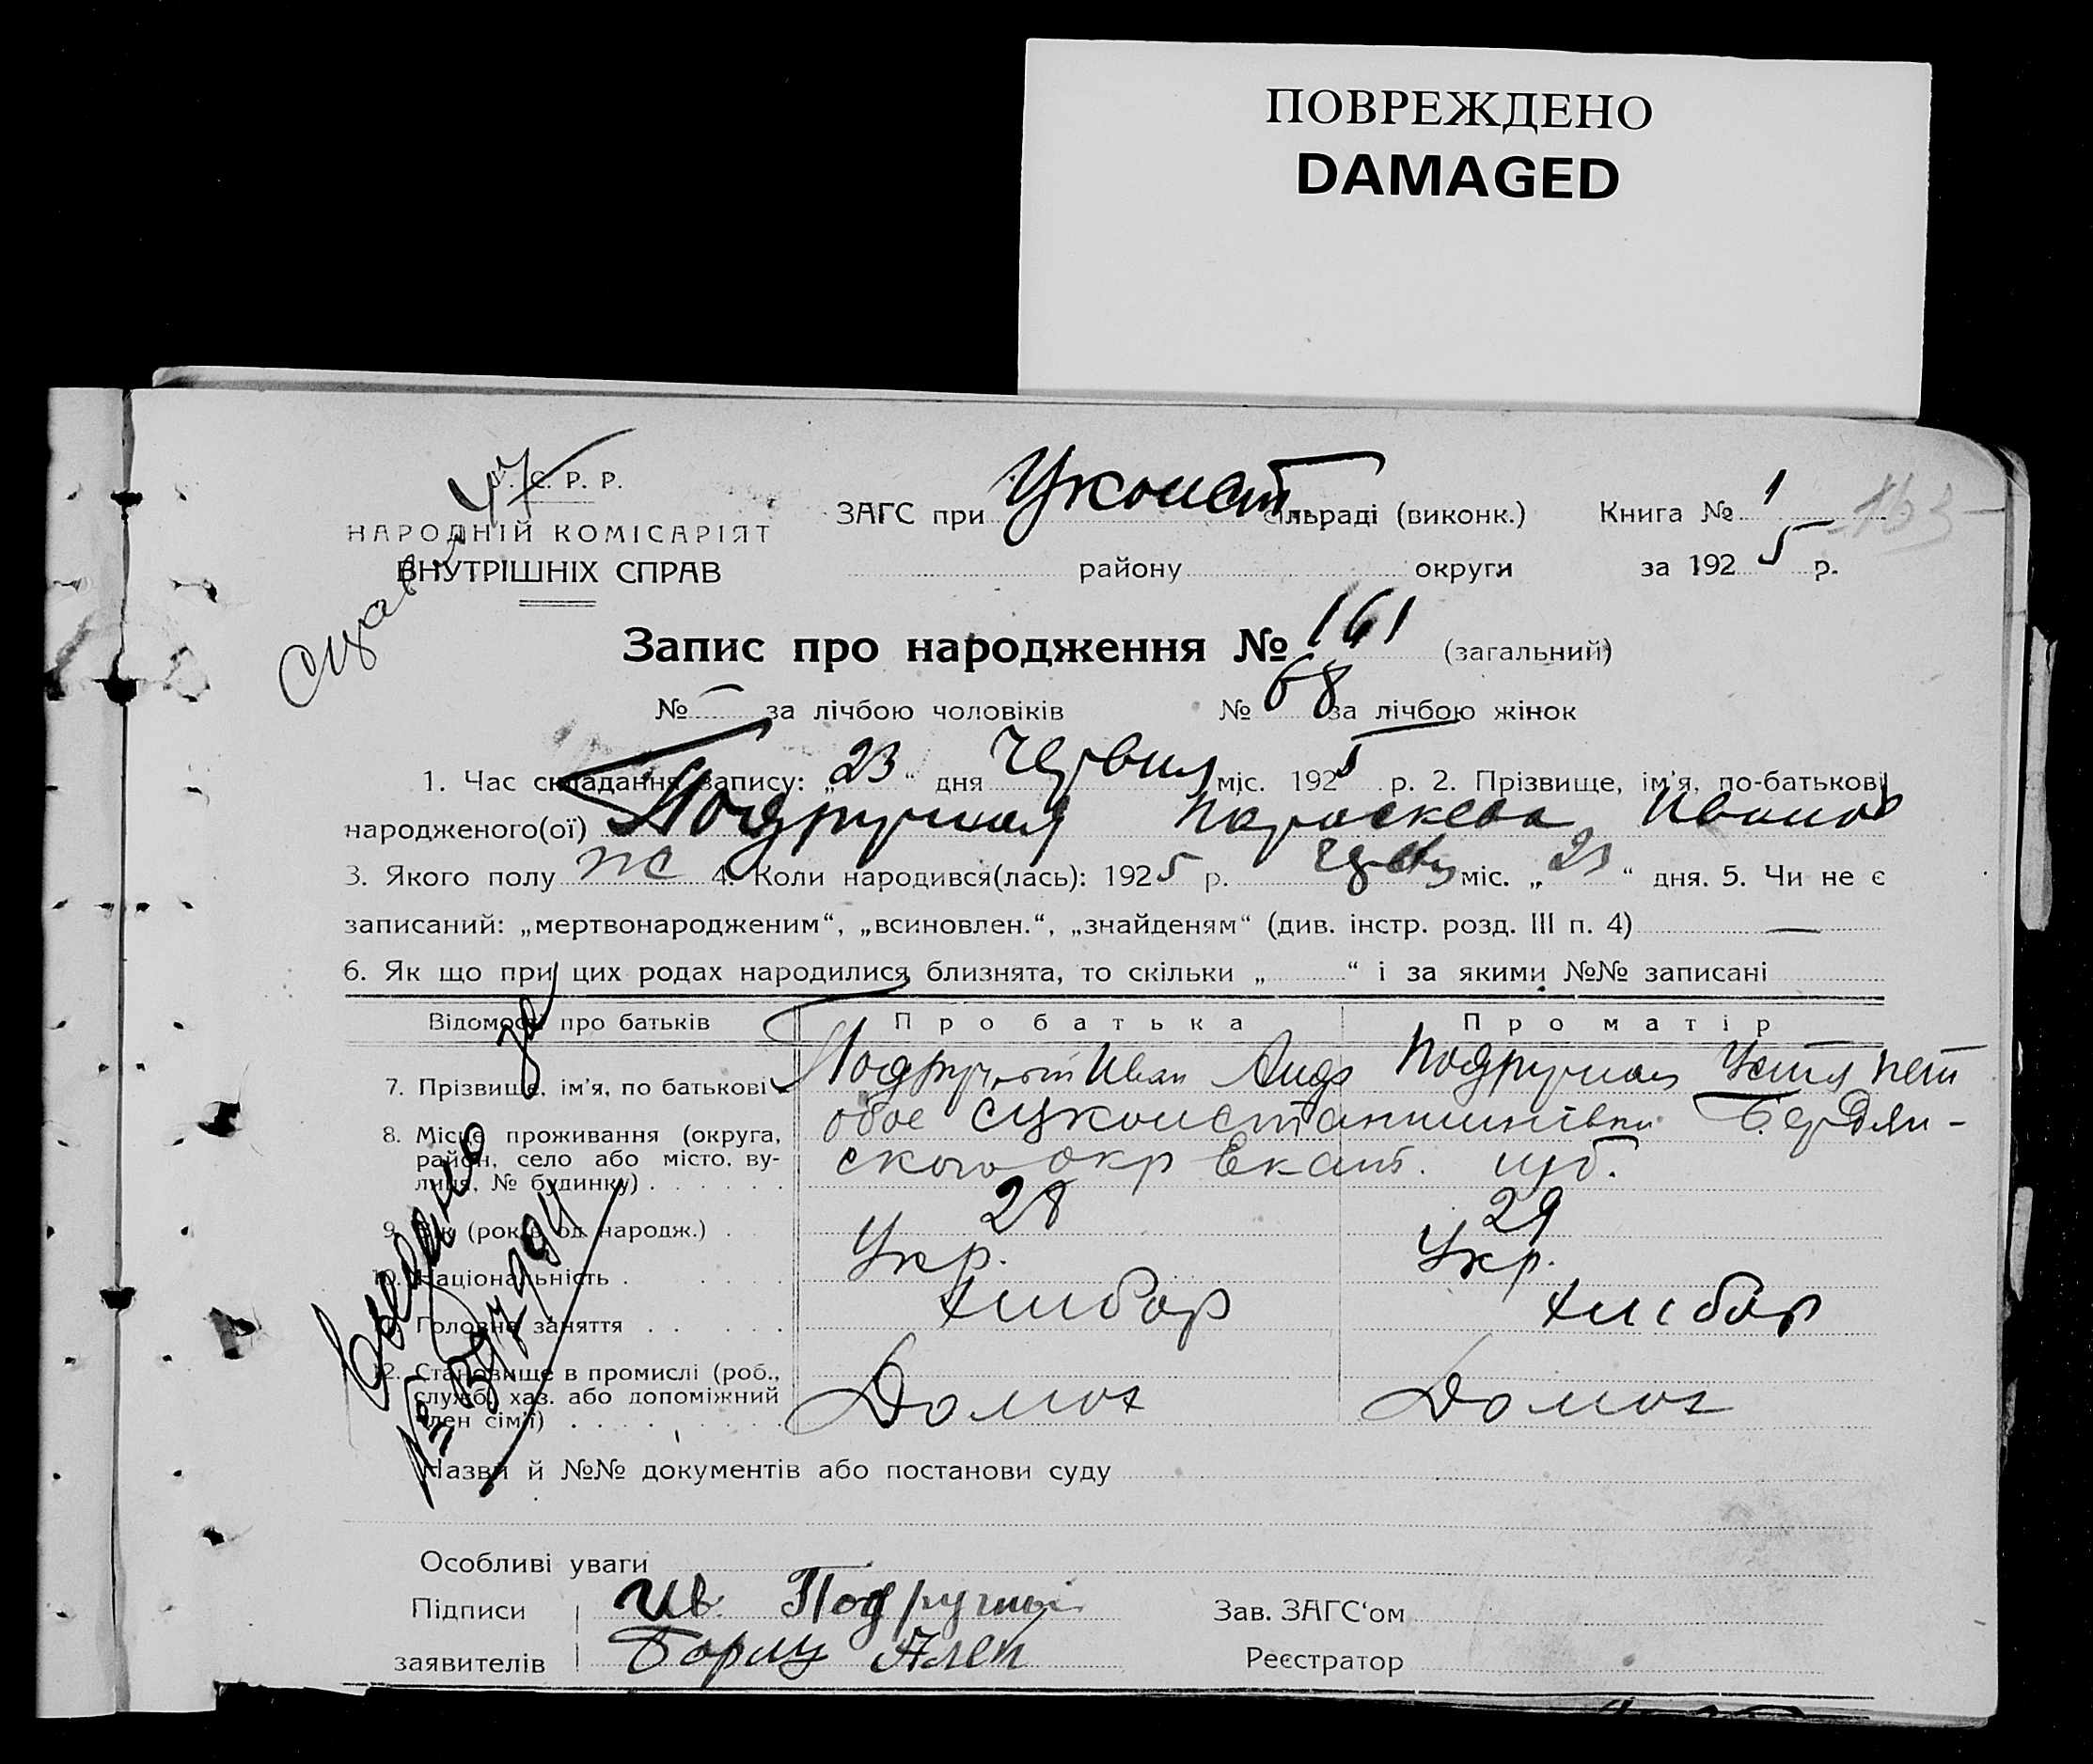 ПОВРЕЖДЕНО
DAMAGED
47
С. Р. Р.
НАРОДНІЙ КОМІСАРІЯТ
ВНУТРІШНІХ СПРАВ
ЗАГС при Уконст. сільраді (виконк.) Книга № 1
району округи за 1925 р.
Запис про народження № 161 (загальний)
№ – за лічбою чоловіків № 68 за лічбою жінок
1. Час складання запису: „23“ дня Червня міс. 1925 р. 2. Прізвище, ім'я, по-батькові
народженого(ої) Подручная Параскева Иванов
3. Якого полу ж 4. Коли народився(лась): 1925 р. міс. „23“ дня. 5. Чи не є
записаний: „мертвонародженим“, „всиновлен.“, „знайденям“ (див. інстр. розд. III п. 4) —
6. Як що при цих родах народилися близнята, то скільки „ “ і за якими №№ записані
Відомості про батьків Про батька Про матір
7. Прізвище, ім'я, по батькові Подручный Иван Андр Подручная Устя Пет
8. Місце проживання (округа, район, село або місто, вулиця, № будинку) обое Бердян-
ского окр Екат. губ.
9. Вік (років од народж.) 28 29
10. Національність Укр. Укр.
Головне заняття хлибор хлибор
12. Становище в промислі (роб., служб. хаз. або допоміжний член сім'ї) Домох Домох
Назви й №№ документів або постанови суду
Особливі уваги
Підписи Ив. Подручный Зав. ЗАГС'ом
заявителів Алек Реєстратор